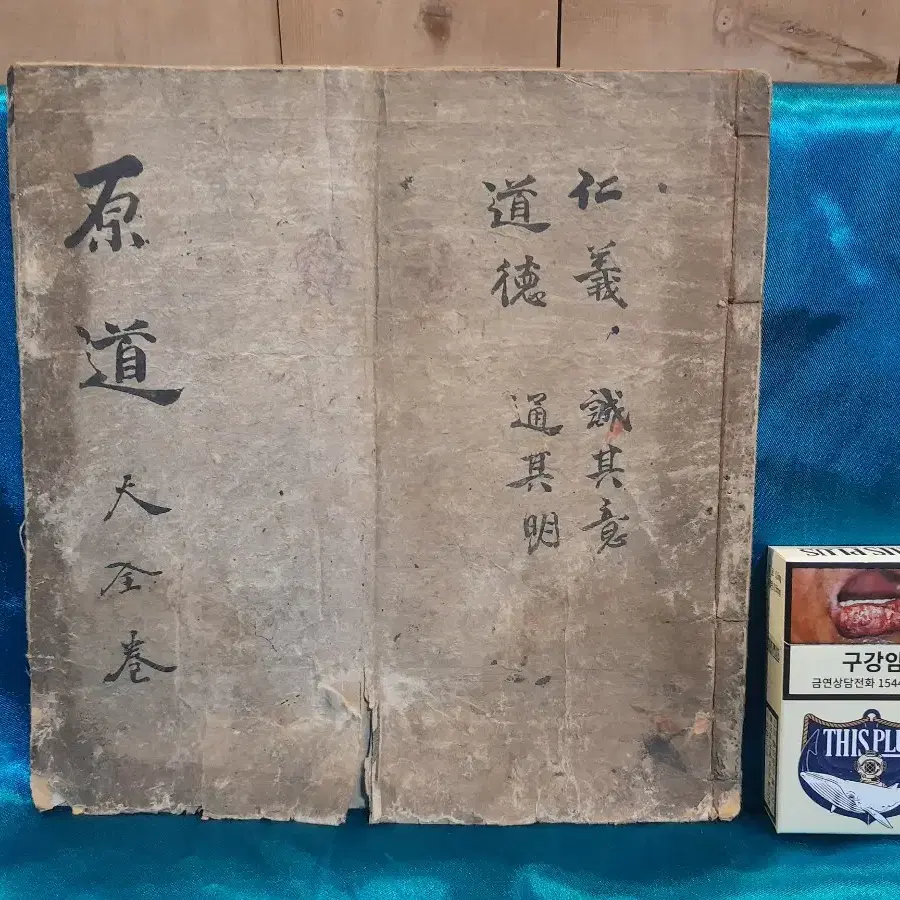 仁義、誠其意
道徳 通其明
原道 天全卷
구강암
금연상담전화 1544
THIS PLU